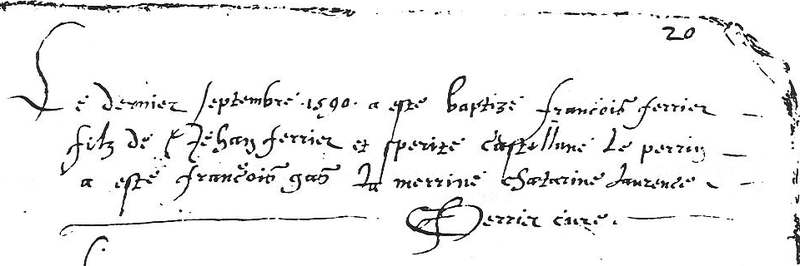 20
Le dernier septembre 1590 a este baptize francois ferrier
filz de Jehan ferrier et sperite Castellane le perrin
a este francois gas la merrine chatarine laurence
ferrier cure